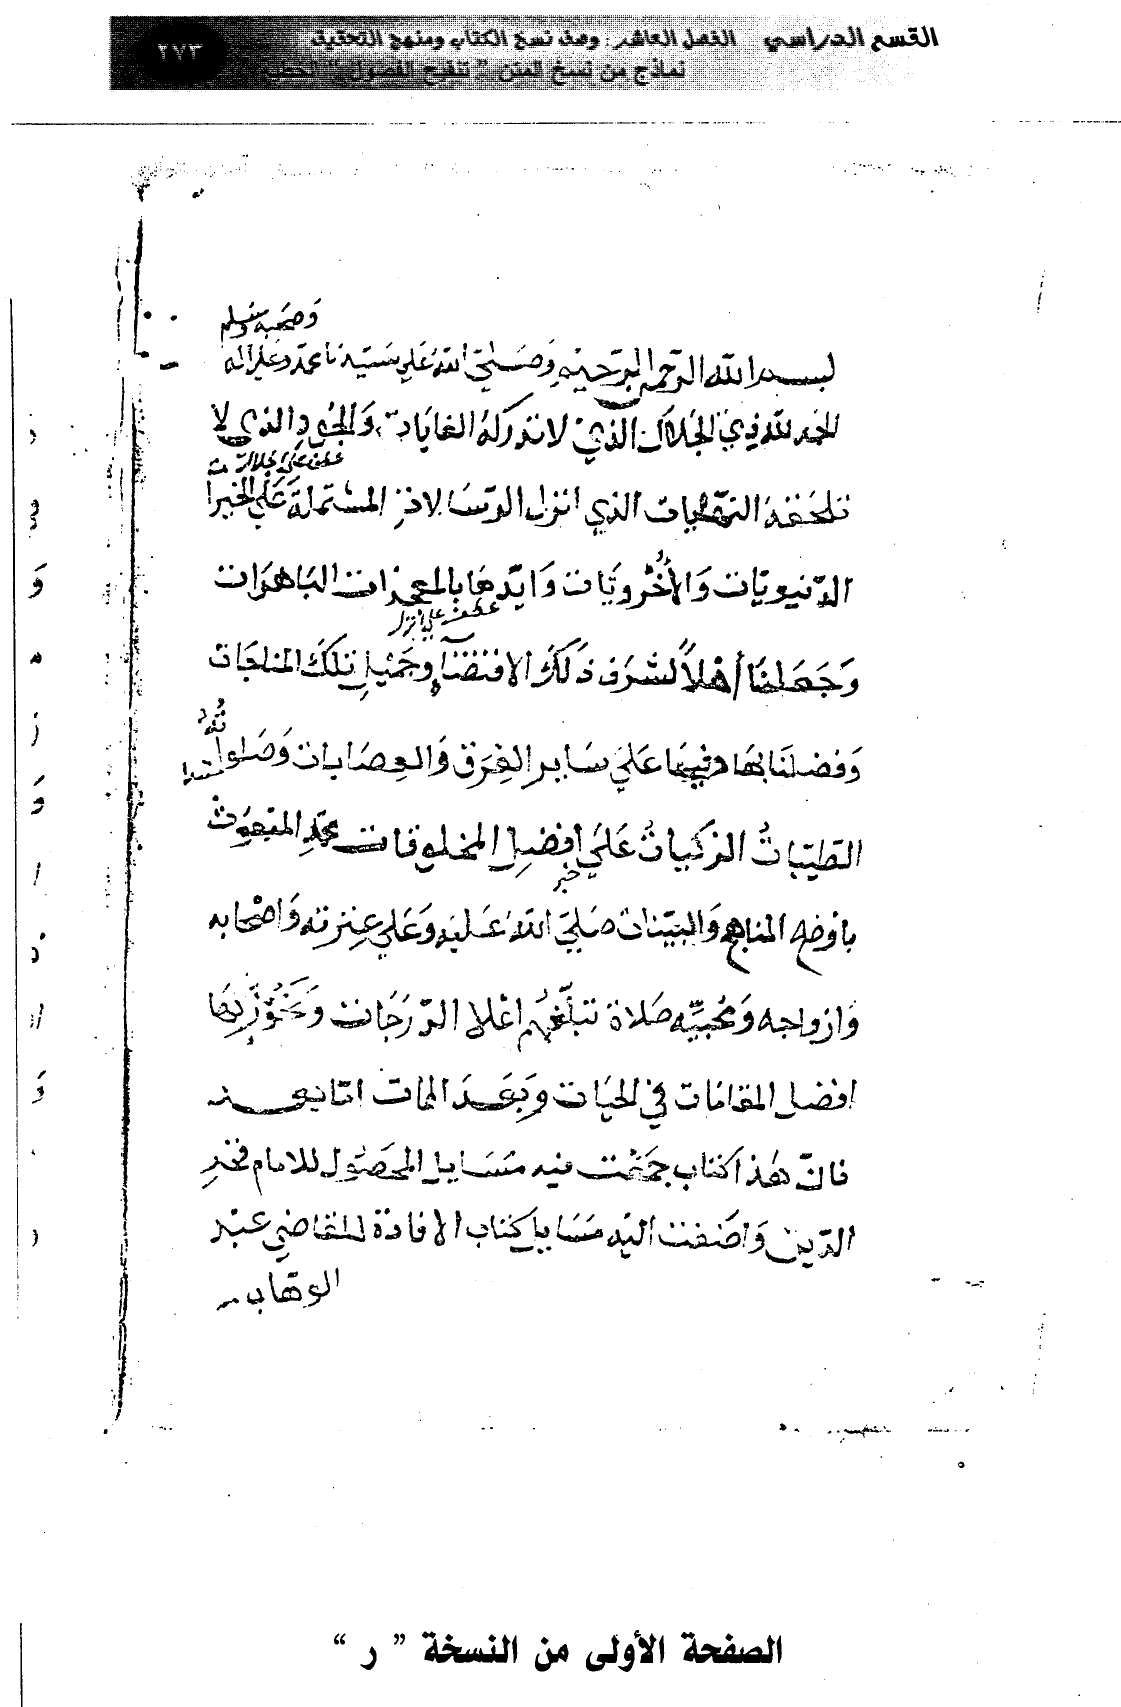 القسم الدراسي الفصل العاشر : وصف نسخ الكتاب ومنهج التحقيق
٢٧٣
نماذج من نسخ المتن " تنقيح الفصول " الخطية
وصحبه وسلم
بسم الله الرحمن الرحيم وصلى الله على سيدنا محمد وعلى اله
الحمد لله ذي الجلال الذي لا تدركه الغايات والجود الذي لا
عطف على الجلال
تلحقه النهايات الذي انزل الرسالات المشتملة على الخيرا
ت
الدنيويات والأخرويات وايدها بالمعجزات الباهرات
عطف على انزل
وجعلنا أهلاً لشرف ذلك الاقتضاء وجميل تلك المناجات
وفضلنا بها وفيها على ساير الفرق والعصابات وصلوا
ته
مبتدا
الطيباتُ الزكياتُ على أفضل المخلوقات محمدٍ المبعوث
خبر
باوضح المناهج والبينات صلى الله عليه وعلى عترته واصحابه
وازواجه ومحبيه صلاة تبلّغهم اعلا الدرجات ونحوز بها
افضل المقامات في الحيات وبعد الممات اما بعد
فان هذا كتاب جمعت فيه مسايل المحصول للامام فخر
الدين واضفت اليه مسايل كتاب الافادة للقاضي عبد
الوهاب
الصفحة الأولى من النسخة " ر "